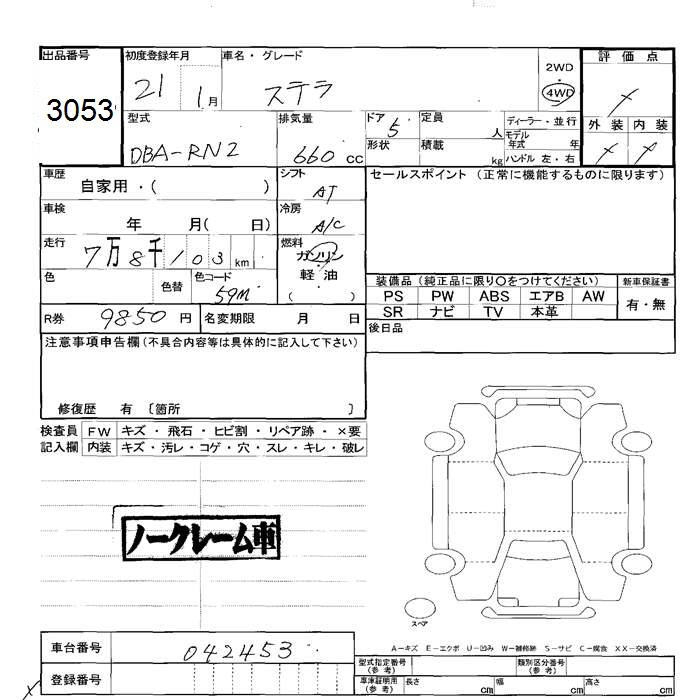 出品番号
3053
初度登録年月
21 1月
車名・グレード
ステラ
2WD
4WD
評価点
外装 内装
型式
DBA-RN2
排気量
660 cc
ドア
5
形状
定員
人
積載
kg
ディーラー・並行
モデル年式 年
ハンドル 左・右
車歴
自家用・( )
シフト
AT
車検
年 月( 日)
冷房
A/C
走行
7万8千103km
燃料
ガソリン
軽油
( )
色
色替
色コード
59M
セールスポイント (正常に機能するものに限ります)
装備品 (純正品に限り〇をつけてください)
PS PW ABS エアB AW
SR ナビ TV 本革
新車保証書
有・無
R券 9850円
名変期限 月 日
後日品
注意事項申告欄(不具合内容等は具体的に記入して下さい)
修復歴 有 〔箇所 〕
検査員記入欄
FW キズ・飛石・ヒビ割・リペア跡・×要
内装 キズ・汚レ・コゲ・穴・スレ・キレ・破レ
ノークレーム車
スペア
A-キズ E-エクボ U-凹み W-補修跡 S-サビ C-腐食 XX-交換済
車台番号
042453
登録番号
型式指定番号(参考)
類別区分番号(参考)
車庫証明用(参考) 長さ cm 幅 cm 高さ cm